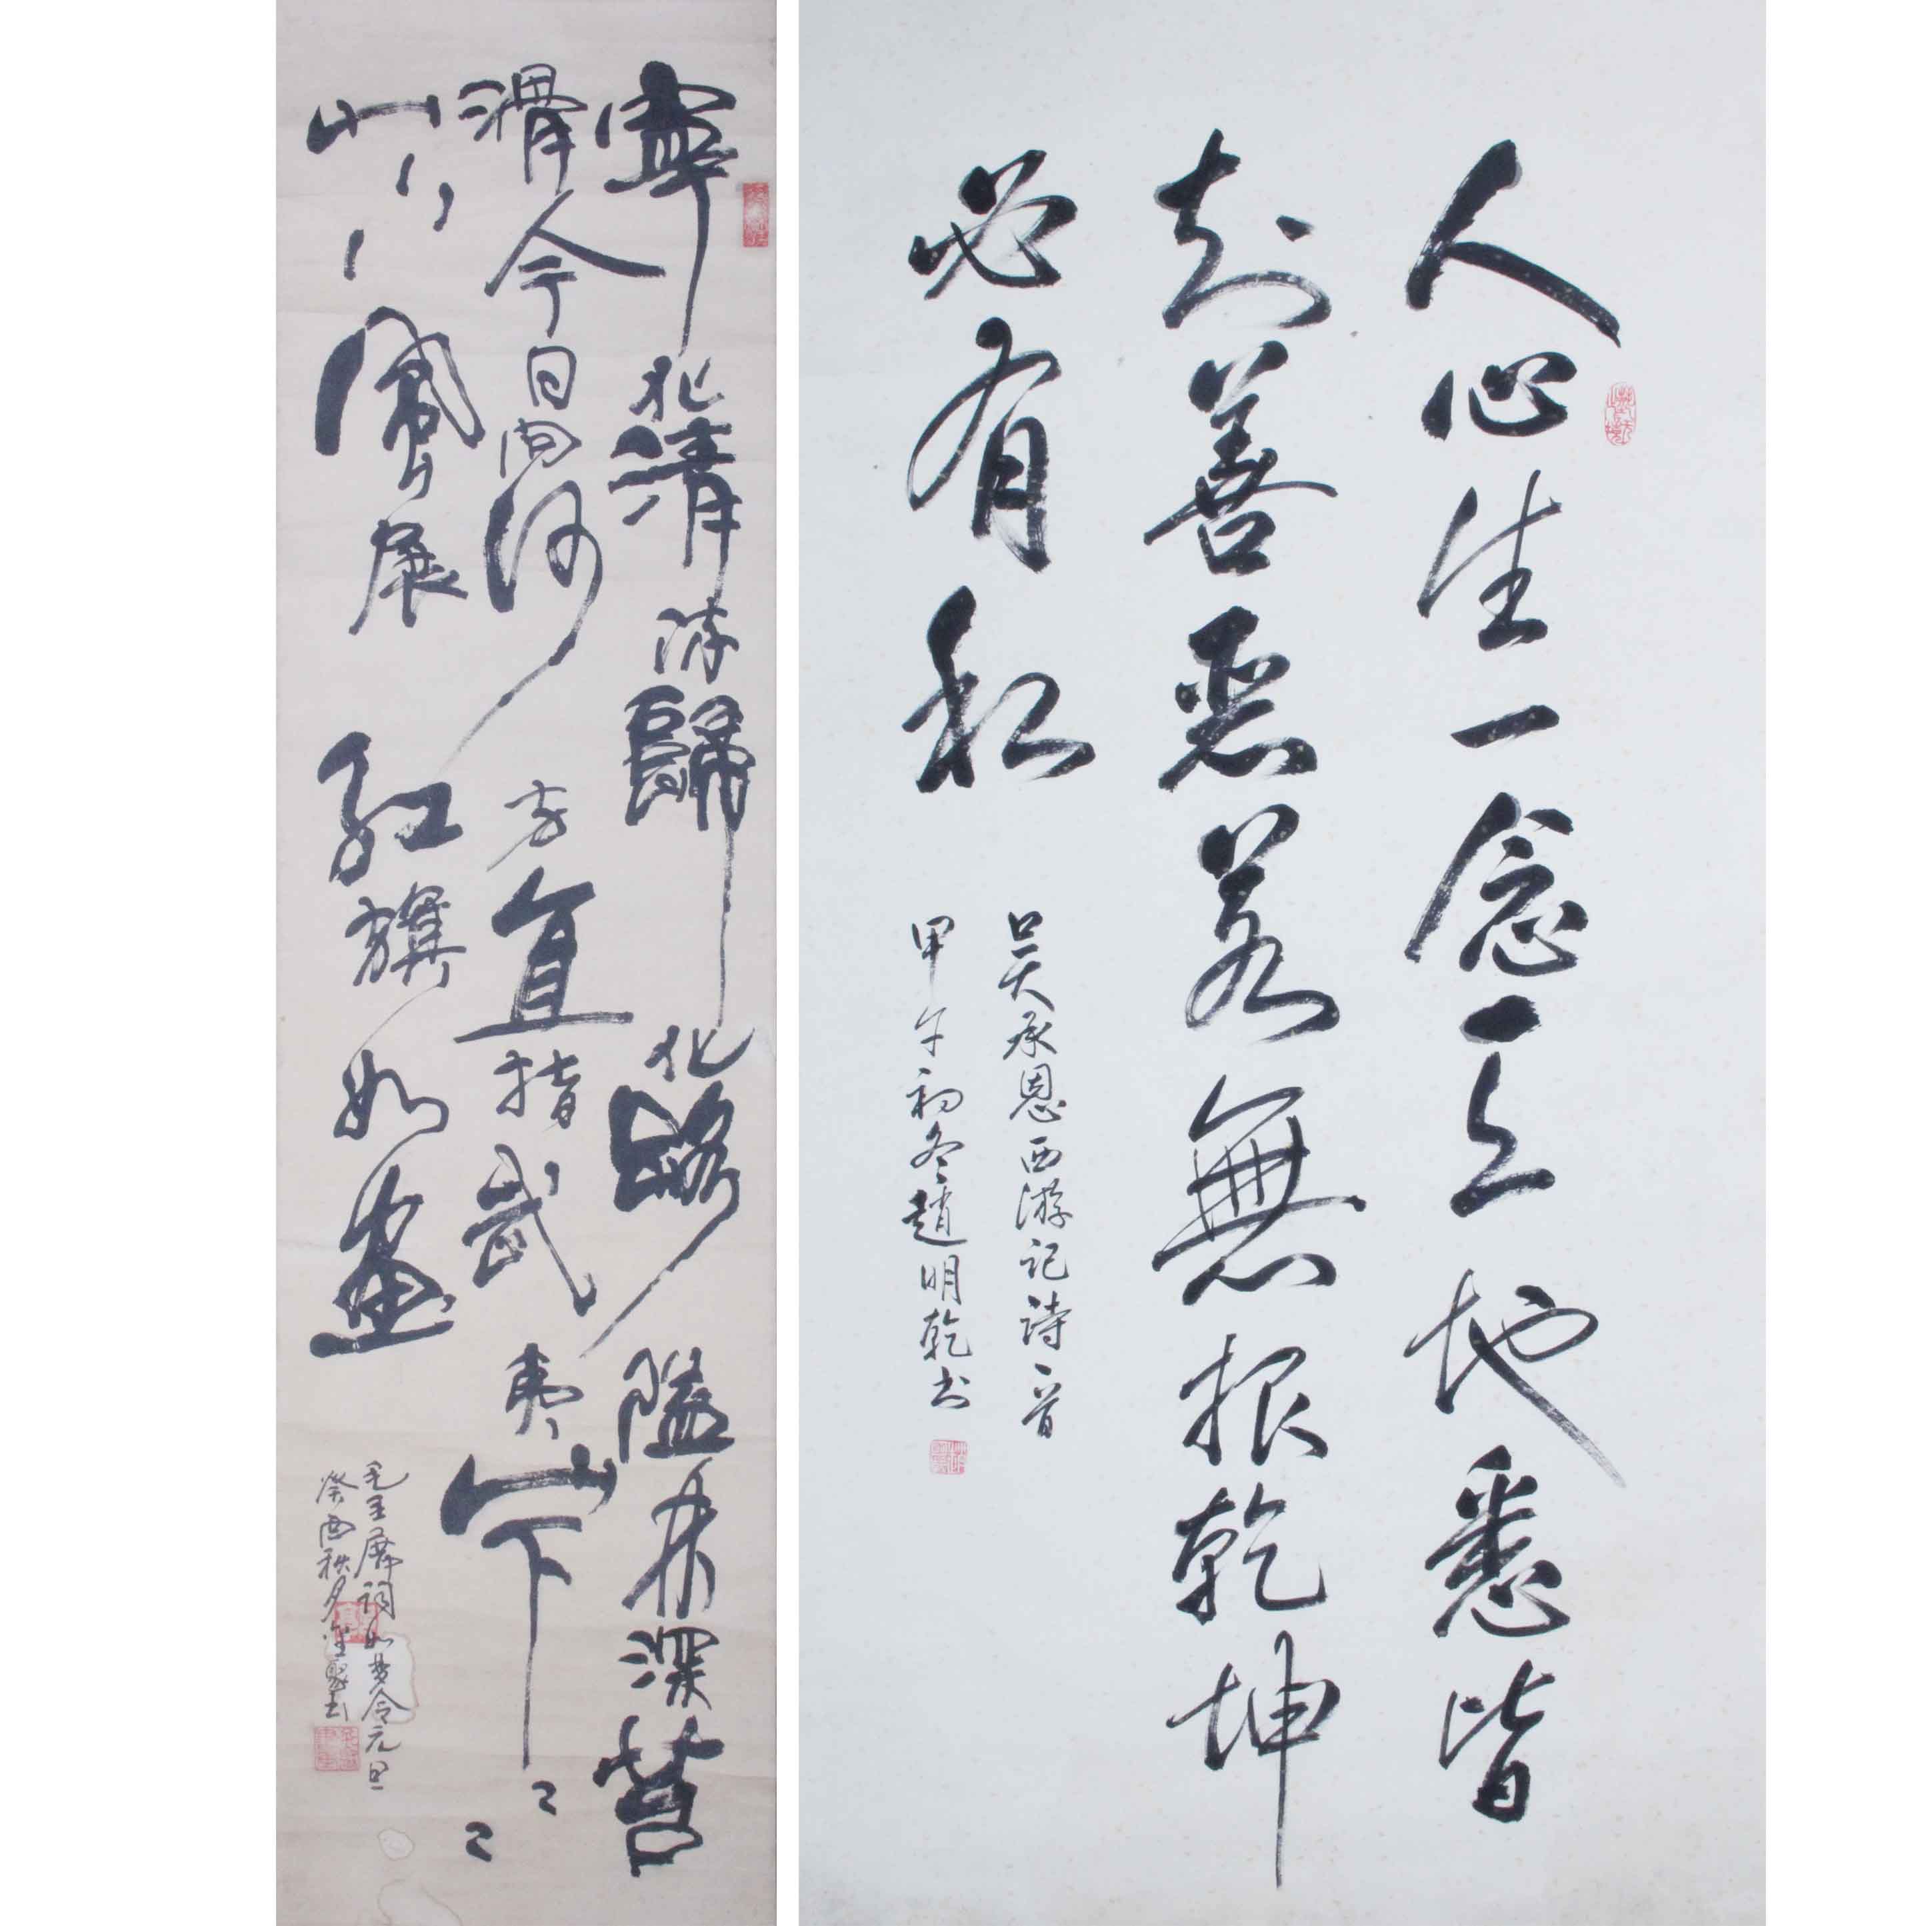 人心生一念天地悉皆
知善惡若無報乾坤
必有私
吴承恩西游记詩一首
甲午初冬趙明乾书
寧化清流歸化路隘林深苔
滑今日向何方直指武夷山下〻〻
山下風展紅旗如畫
毛主席詞如夢令元旦
癸酉秋月